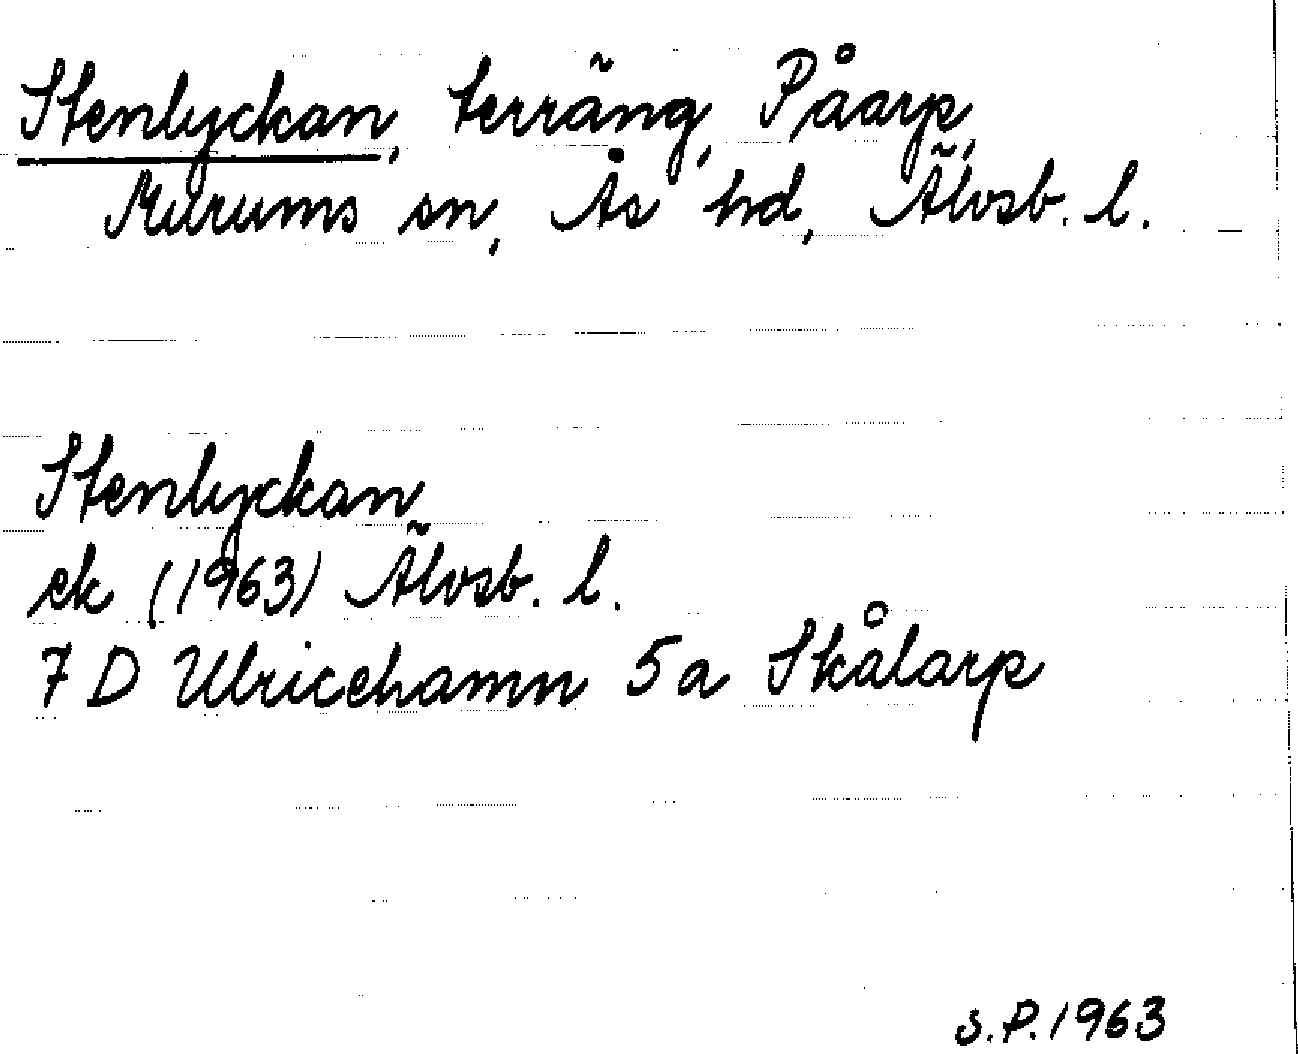 Stenlyckan, terräng, Påarp,
Murums sn, Ås hd, Älvsb. l.
Stenlyckan
ek (1963) Älvsb. l.
7 D Ulricehamn 5a Skålarp
S.P. 1963